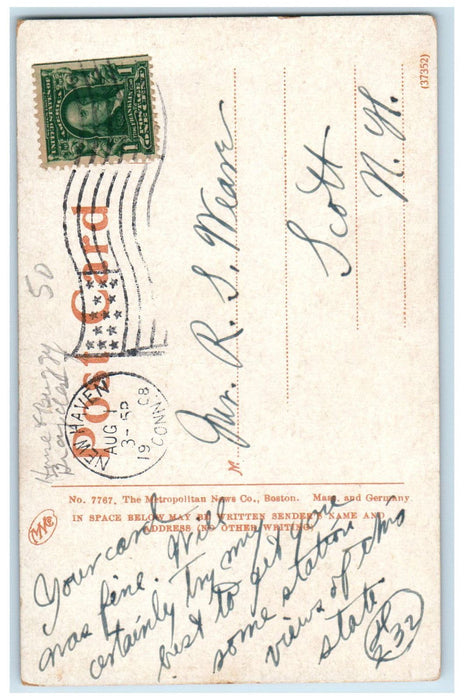 UNITED STATES OF AMERICA
FRANKLIN
ONE CENT
(37352)
Post Card
NEW HAVEN
AUG 1
3-5P
1908
CONN.
50
Horse & Buggy
Mr. R. S. Weave
Scott
N. Y.
No. 7767. The Metropolitan News Co., Boston. Mass. and Germany
IN SPACE BELOW MAY BE WRITTEN SENDER'S NAME AND
ADDRESS (NO OTHER WRITING)
Your card
was fine. Will
certainly try my
best to get you
some station
views of this
state.
32